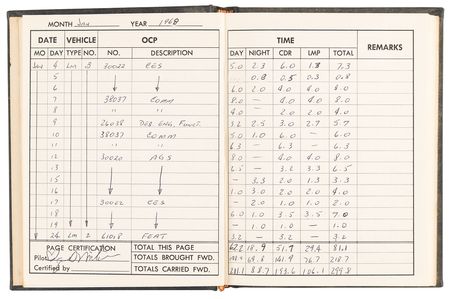 MONTH Jan YEAR 1968
DATE VEHICLE OCP TIME REMARKS
MO DAY TYPE NO. NO. DESCRIPTION DAY NIGHT CDR LMP TOTAL
Jan 4 LM 3 30022 ECS 5.0 2.3 6.0 1.3 7.3
5 - 0.8 0.5 0.3 0.8
6 6.0 2.0 4.0 4.0 8.0
7 38037 COMM 8.0 - 4.0 4.0 8.0
8 " " 4.0 - 2.0 2.0 4.0
9 26038 ENG. FUNCT. 3.2 2.5 3.0 2.7 5.7
10 38037 COMM 5.0 1.0 6.0 - 6.0
11 " " 6.3 - 6.3 - 6.3
12 30020 AGS 8.0 - 4.0 4.0 8.0
13 6.5 - 3.2 3.3 6.5
15 - 3.3 2.0 1.3 3.3
16 1.0 3.0 2.0 2.0 4.0
17 30022 ECS - 2.0 1.0 1.0 2.0
18 6.0 1.0 3.5 3.5 7.0
19 - 1.0 1.0 - 1.0
24 LM 2 61018 FEAT 3.2 - 3.2 - 3.2
PAGE CERTIFICATION TOTAL THIS PAGE 62.2 18.9 51.7 29.4 81.1
Pilot TOTALS BROUGHT FWD. 69.8 141.9 76.7 218.7
Certified by TOTALS CARRIED FWD. 211.1 88.7 193.6 106.1 299.8